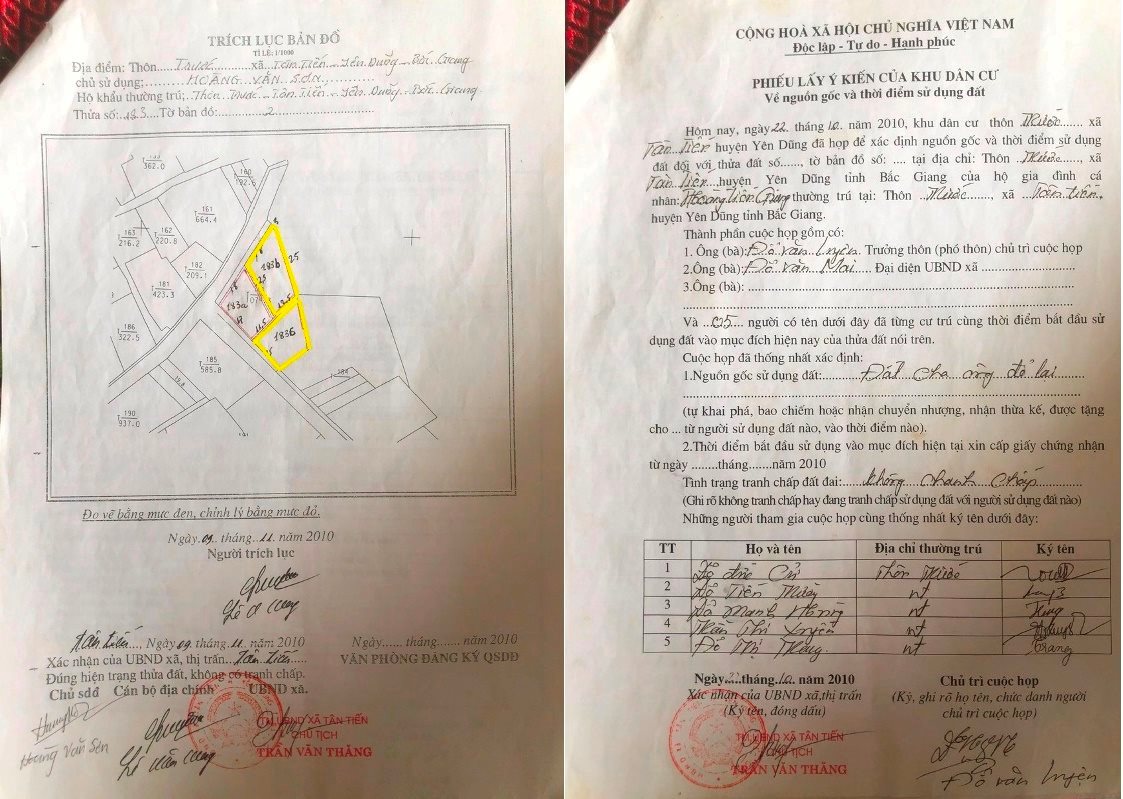 TRÍCH LỤC BẢN ĐỒ
TỈ LỆ: 1/1000
Địa điểm: Thôn....Thước.......xã..Tân Tiến - Yên Dũng - Bắc Giang
chủ sử dụng;........HOÀNG VĂN SƠN..........
Hộ khẩu thường trú;..Thôn Thước - Tân Tiến - Yên Dũng - Bắc Giang
Thửa số:.183....Tờ bản đồ:.........2..........
T 133
362.0
160
192.5
T 161
664.4
T 163
216.2
T 162
220.8
T 182
209.1
T 181
423.3
T 186
322.5
T 185
585.8
T 190
937.0
184
8
183b
25
25
18
183a
13.5
11.5
12
183б
5
Đo vẽ bằng mực đen, chỉnh lý bằng mực đỏ.
Ngày.09..tháng..11.. năm 2010
Người trích lục
Tân Tiến..., Ngày 09. tháng..11.. năm 2010
Xác nhận của UBND xã, thị trấn...Tân Tiến....
Đúng hiện trạng thửa đất, không có tranh chấp.
Chủ sdđ Cán bộ địa chính UBND xã.
Ngày...... tháng....... năm 2010
VĂN PHÒNG ĐĂNG KÝ QSDĐ
TM UBND XÃ TÂN TIẾN
CHỦ TỊCH
TRẦN VĂN THẮNG
Hoàng Văn Sơn
CỘNG HOÀ XÃ HỘI CHỦ NGHĨA VIỆT NAM
Độc lập - Tự do - Hạnh phúc
PHIẾU LẤY Ý KIẾN CỦA KHU DÂN CƯ
Về nguồn gốc và thời điểm sử dụng đất
Hôm nay, ngày 22. tháng.10. năm 2010, khu dân cư thôn Thước....... xã
Tân Tiến huyện Yên Dũng đã họp để xác định nguồn gốc và thời điểm sử dụng
đất đối với thửa đất số......, tờ bản đồ số: .... tại địa chỉ: Thôn ..Thước......, xã
Tân Tiến..,huyện Yên Dũng tỉnh Bắc Giang của hộ gia đình cá
nhân: Hoàng thường trú tại: Thôn ..Thước......., xã ..Tân tiến.,
huyện Yên Dũng tỉnh Bắc Giang.
Thành phần cuộc họp gồm có:
1. Ông (bà):Đỗ Văn Luyện. Trưởng thôn (phó thôn) chủ trì cuộc họp
2.Ông (bà):Đỗ Văn Mai.... Đại diện UBND xã ........................
3.Ông (bà): ................................................
Và ...05.... người có tên dưới đây đã từng cư trú cùng thời điểm bắt đầu sử
dụng đất vào mục đích hiện nay của thửa đất nói trên.
Cuộc họp đã thống nhất xác định:
1.Nguồn gốc sử dụng đất:..........Đất cha ông để lại..........
(tự khai phá, bao chiếm hoặc nhận chuyển nhượng, nhận thừa kế, được tặng
cho ... từ người sử dụng đất nào, vào thời điểm nào).
2.Thời điểm bắt đầu sử dụng vào mục đích hiện tại xin cấp giấy chứng nhận
từ ngày ........tháng.......năm 2010
Tình trạng tranh chấp đất đai:......không chanh chấp............
(Ghi rõ không tranh chấp hay đang tranh chấp sử dụng đất với người sử dụng đất nào)
Những người tham gia cuộc họp cùng thống nhất ký tên dưới đây:
TT Họ và tên Địa chỉ thường trú Ký tên
1 Thôn Thước
2 Đỗ Tiến nt
3 Đỗ Mạnh Hồng nt Hồng
4 Trần Thị Luyện nt
5 Đỗ Thị Trang nt Trang
Ngày....tháng.10. năm 2010
Xác nhận của UBND xã,thị trấn
(Ký tên, đóng dấu)
Chủ trì cuộc họp
(Ký, ghi rõ họ tên, chức danh người
chủ trì cuộc họp)
TM UBND XÃ TÂN TIẾN
CHỦ TỊCH
TRẦN VĂN THẮNG
Đỗ Văn Luyện